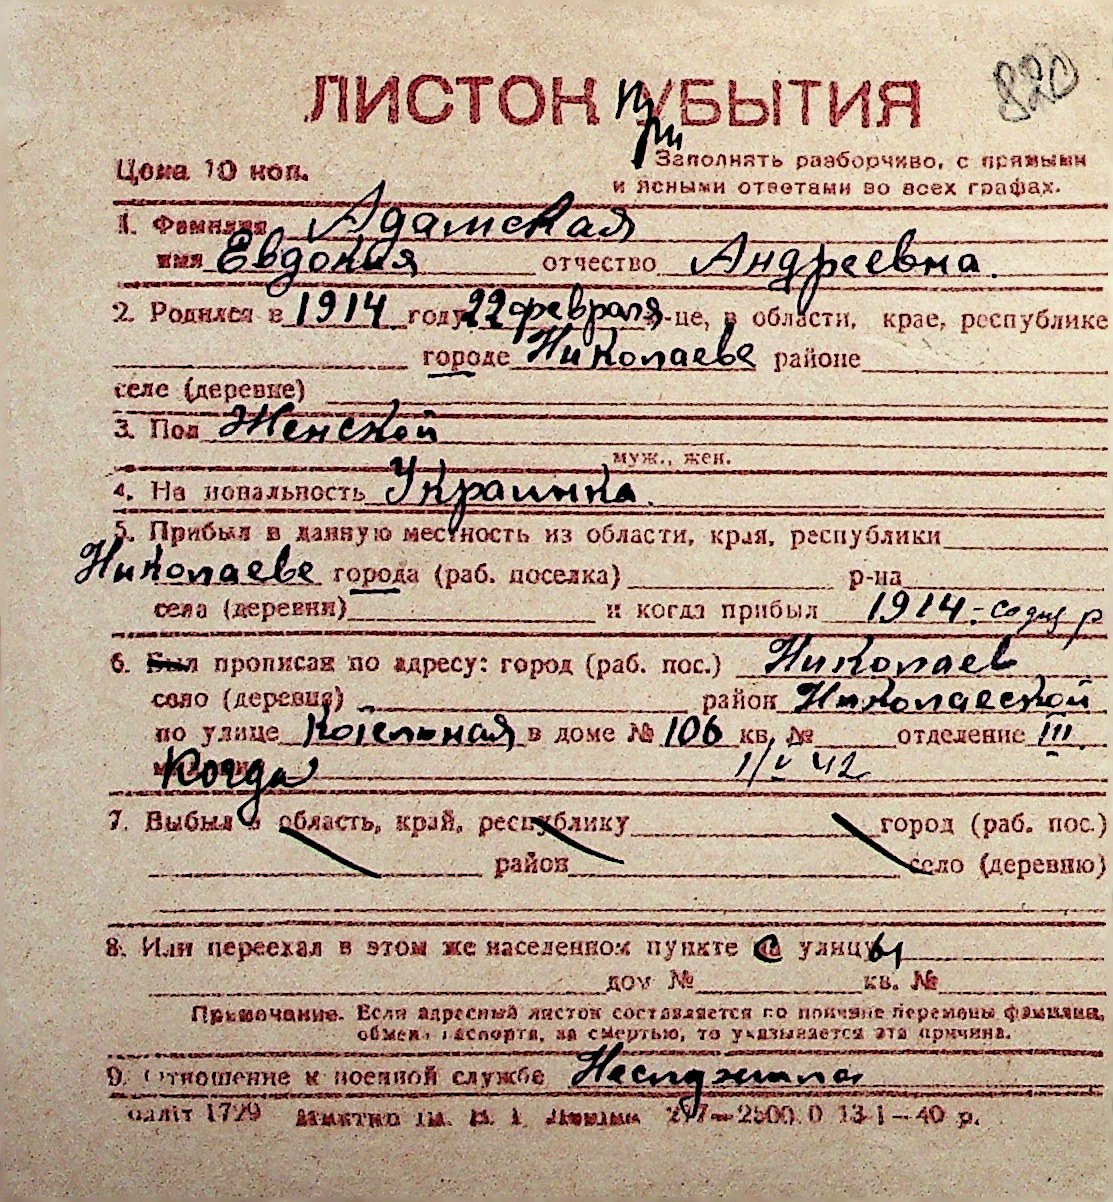 820
ЛИСТОК прИУБЫТИЯ
Цена 10 коп.
Заполнять разборчиво, с прямыми
и ясными ответами во всех графах.
1. Фамилия Адамская
имя Евдокия отчество Андреевна.
2. Родился в 1914 году 22 февраля -це, в области, крае, республике
городе Николаеве районе
селе (деревне)
3. Пол Женской
муж., жен.
4. Национальность Украинка.
5. Прибыл в данную местность из области, края, республики
Николаеве города (раб. поселка) р-на
села (деревни) и когда прибыл 1914
6. Был прописан по адресу: город (раб. пос.) Николаев
село (деревня) район Николаеской
по улице Котельная в доме № 106 кв. № отделение III
Когда 1/V 42
7. Выбыл в область, край, республику город (раб. пос.)
район село (деревню)
8. Или переехал в этом же населенном пункте с улицы
дом № кв. №
Примечание. Если адресный листок составляется по причине перемены фамилии,
обмена паспорта, за смертью, то указывается эта причина.
9. Отношение к военной службе Неслужила
облліт 1729 2500.0 13-1—40 р.